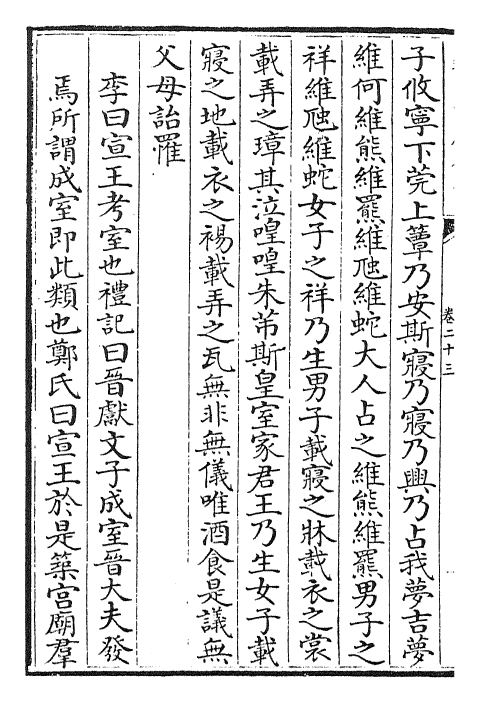 子攸寧下莞上簟乃安斯寢乃寢乃興乃占我夢吉夢
維何維熊維羆維虺維蛇大人占之維熊維羆男子之
祥維虺維蛇女子之祥乃生男子載寢之牀載衣之裳
載弄之璋其泣喤喤朱芾斯皇室家君王乃生女子載
寢之地載衣之裼載弄之瓦無非無儀唯酒食是議無
父母詒罹
李曰宣王考室也禮記曰晉獻文子成室晉大夫發
焉所謂成室即此類也鄭氏曰宣王於是築宮廟羣
卷二十三